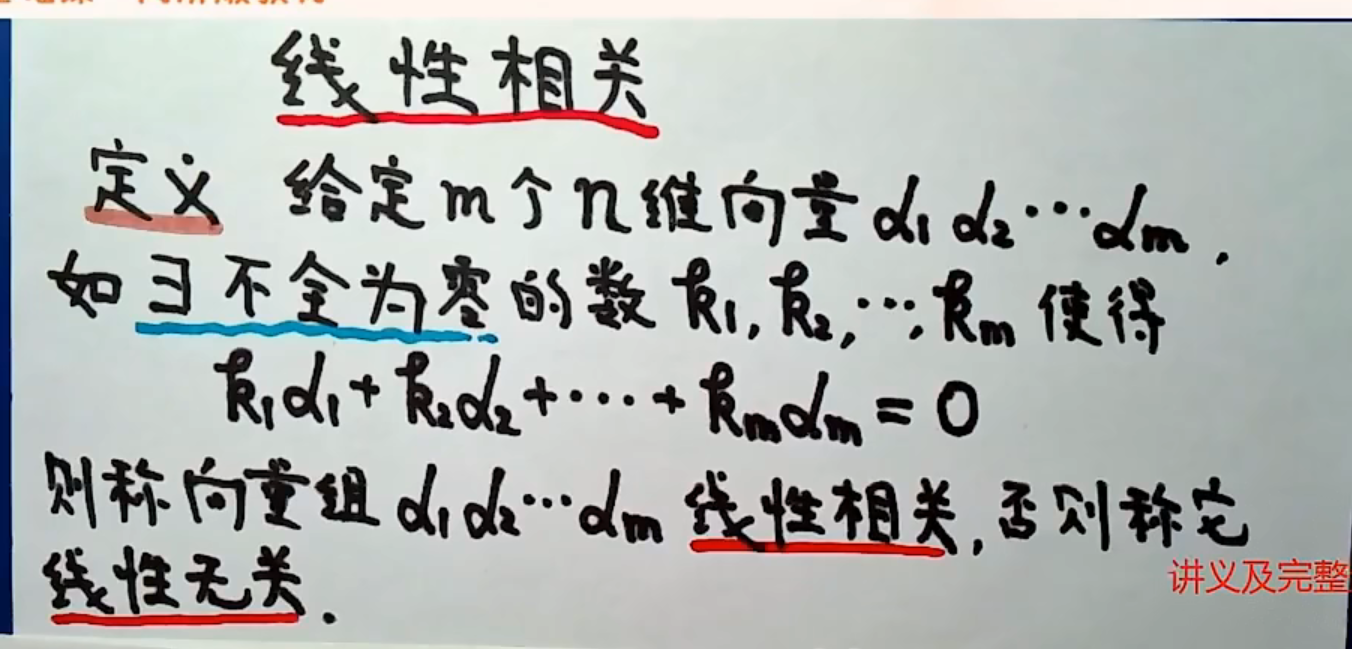 线性相关
定义 给定m个n维向量α₁ α₂ ⋯ αₘ.
如∃不全为零的数 k₁, k₂, ⋯, kₘ 使得
k₁α₁ + k₂α₂ + ⋯ + kₘαₘ = 0
则称向量组 α₁ α₂ ⋯ αₘ 线性相关, 否则称它
线性无关.
讲义及完整